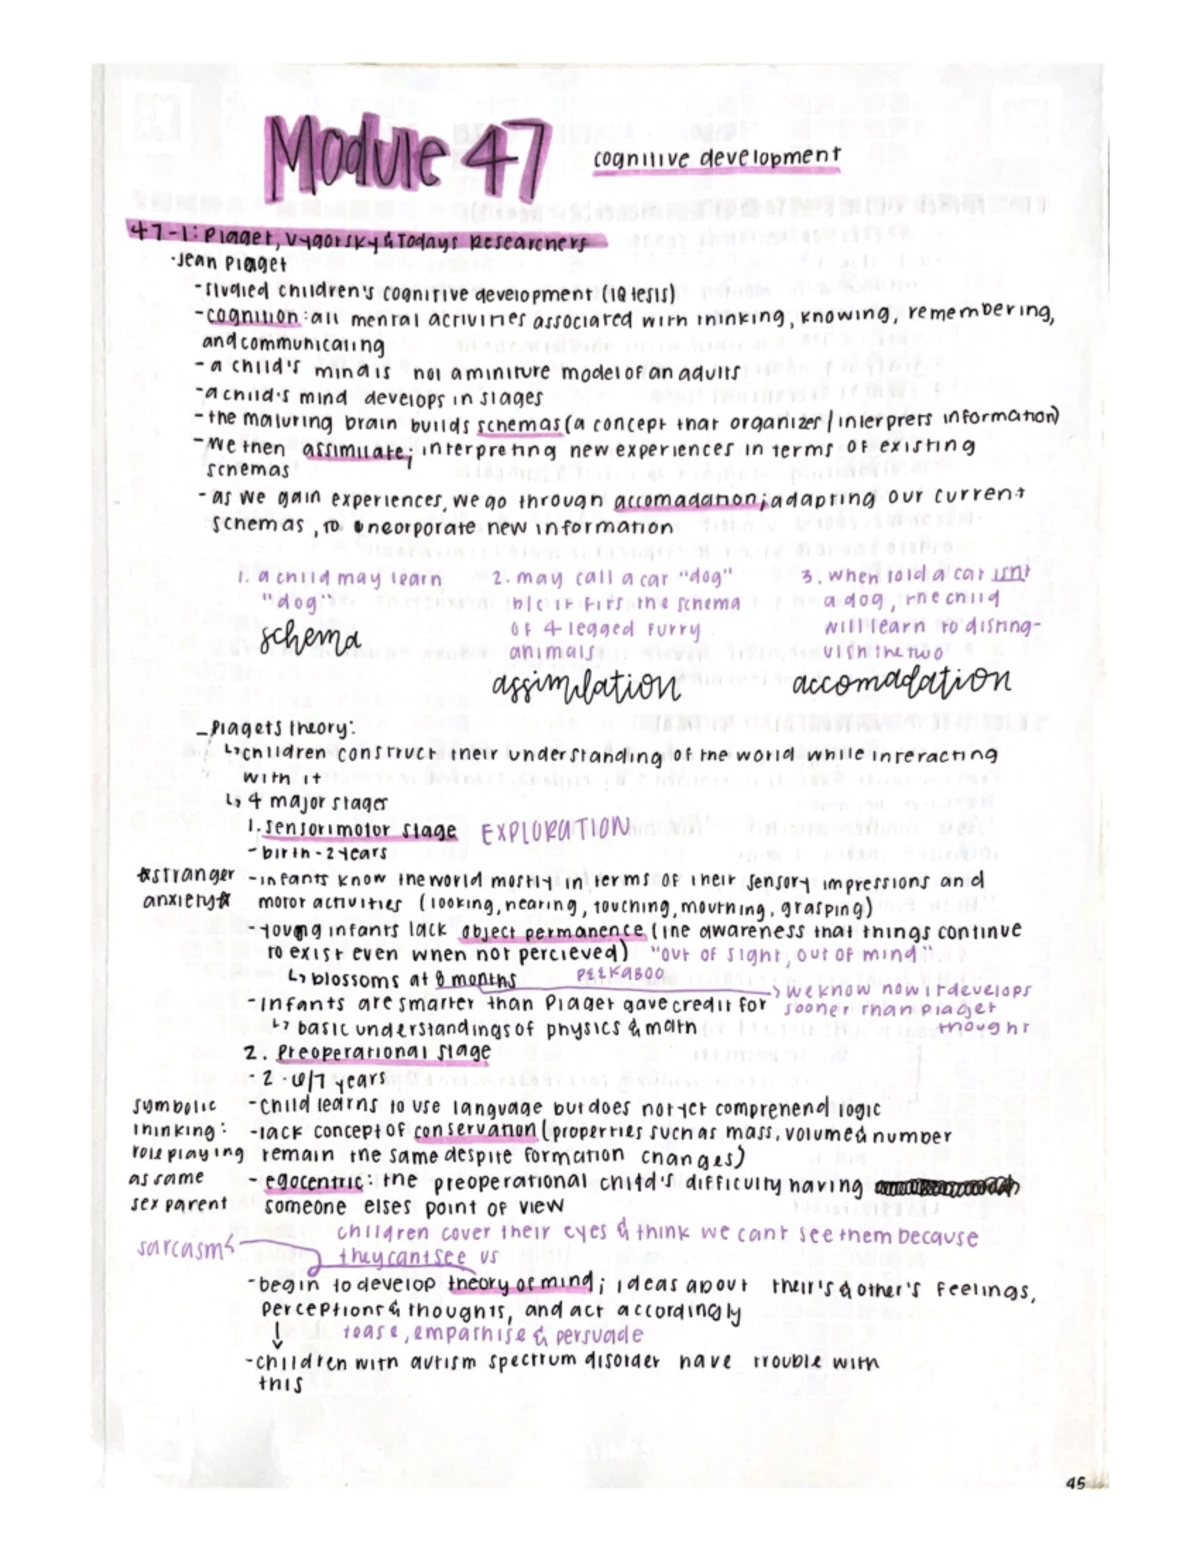 Module 47
cognitive development
47-1: Piaget, Vygotsky & Todays Researchers
·Jean Piaget
-studied children's cognitive development (IQ tests)
-cognition: all mental activities associated with thinking, knowing, remembering,
and communicating
- a child's mind is not a miniture model of an adults
-a child's mind develops in stages
-the maturing brain builds schemas (a concept that organizes/interprets information)
-we then assimilate; interpreting new experiences in terms of existing
schemas
-as we gain experiences, we go through accomadation; adapting our current
schemas, to incorporate new information
1. a child may learn
"dog"
schema
2. may call a cat "dog"
b/c it fits the schema
of 4-legged furry
animals
assimilation
3. when told a cat isnt
a dog, the child
will learn to disting-
uish the two
accomadation
-Piagets theory:
↳children construct their understanding of the world while interacting
with it
↳ 4 major stages
1. Sensorimotor Stage EXPLORATION
-birth-2 years
*stranger
anxiety*
-infants know the world mostly in terms of their sensory impressions and
motor activities (looking, hearing, touching, mouthing, grasping)
-young infants lack object permanence (the awareness that things continue
to exist even when not percieved) "out of sight, out of mind"
↳blossoms at 8 months PEEKABOO
→we know now it develops
sooner than Piaget
thought
-infants are smarter than Piaget gave credit for
↳ basic understandings of physics & math
2. Preoperational Stage
- 2 - 6/7 years
symbolic
thinking:
role playing
as same
sex parent
-child learns to use language but does not yet comprehend logic
-lack concept of conservation (properties such as mass, volume & number
remain the same despite formation changes)
- egocentric: the preoperational child's difficulty having
someone elses point of view
children cover their eyes & think we cant see them because
they cant see us
sarcasm
-begin to develop theory of mind; ideas about their's & other's feelings,
perceptions & thoughts, and act accordingly
↓ tease, empathise & persuade
-children with autism spectrum disorder have trouble with
this
45